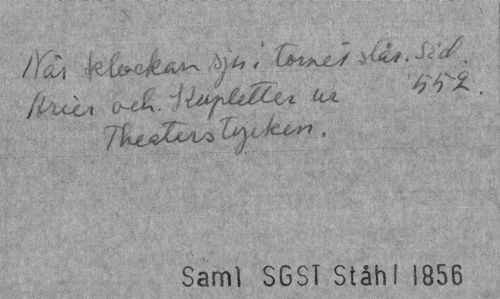 När klockan sju i tornet slår. Sid.
Arier och Kupletter ur 552.
Theaterstycken.
Saml SGST Ståhl 1856